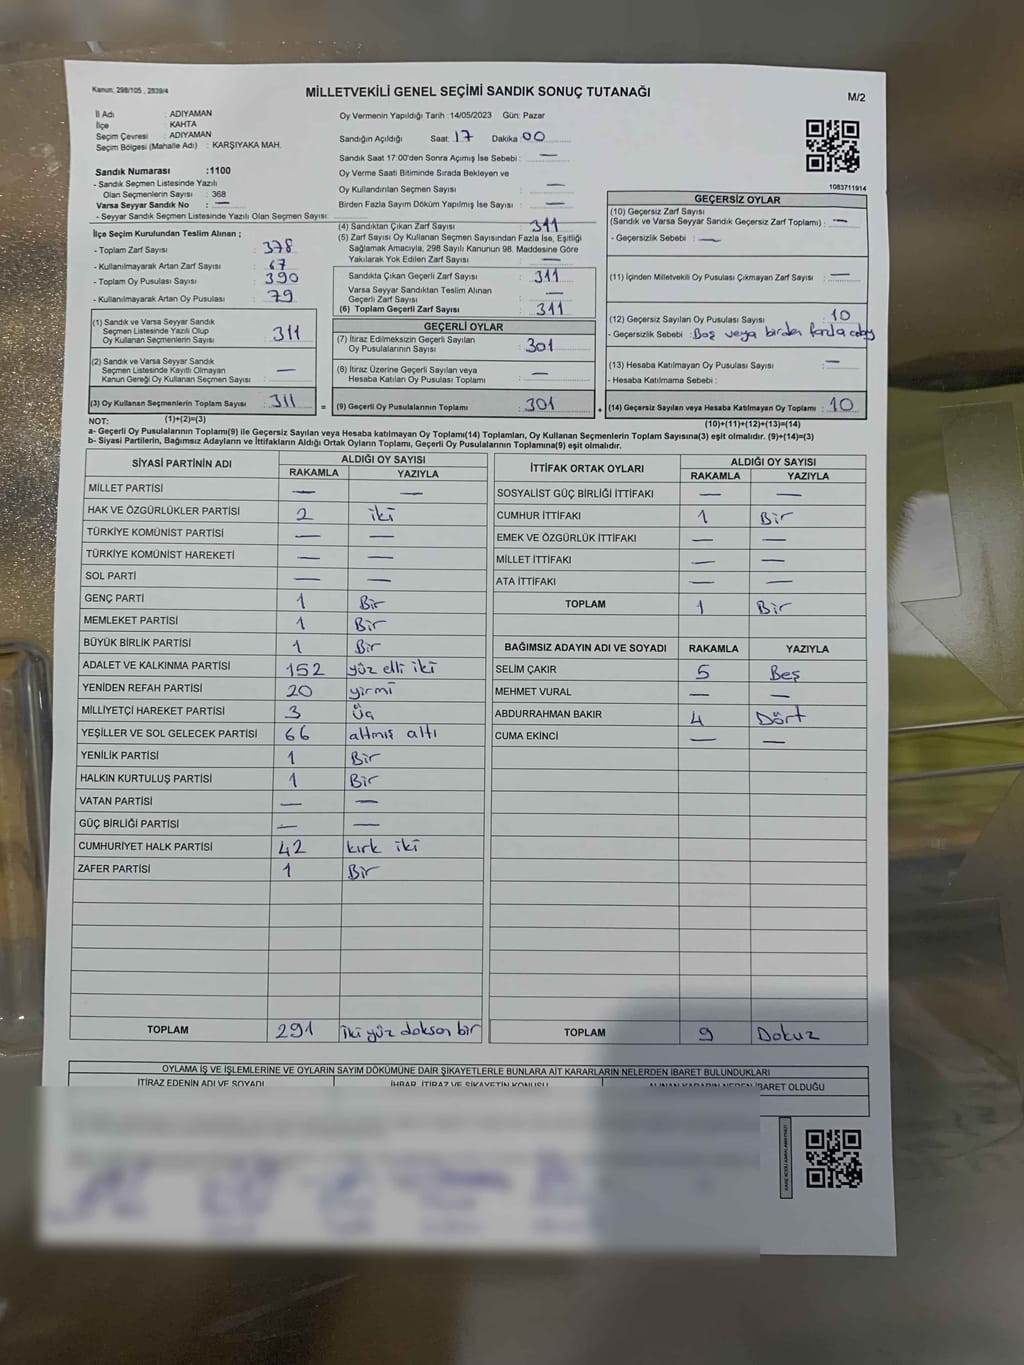 Kanun; 298/105 , 2839/4
MİLLETVEKİLİ GENEL SEÇİMİ SANDIK SONUÇ TUTANAĞI
M/2
İl Adı : ADIYAMAN
İlçe : KAHTA
Seçim Çevresi : ADIYAMAN
Seçim Bölgesi (Mahalle Adı) : KARŞIYAKA MAH.
Oy Vermenin Yapıldığı Tarih : 14/05/2023 Gün: Pazar
Sandığın Açıldığı Saat: 17 Dakika: 00
Sandık Saat 17:00'den Sonra Açımış İse Sebebi : —
Oy Verme Saati Bitiminde Sırada Bekleyen ve
Oy Kullandırılan Seçmen Sayısı : —
Birden Fazla Sayım Döküm Yapılmış İse Sayısı : —
1083711914
Sandık Numarası :1100
- Sandık Seçmen Listesinde Yazılı
Olan Seçmenlerin Sayısı : 368
Varsa Seyyar Sandık No : —
- Seyyar Sandık Seçmen Listesinde Yazılı Olan Seçmen Sayısı:
İlçe Seçim Kurulundan Teslim Alınan ;
- Toplam Zarf Sayısı : 378
- Kullanılmayarak Artan Zarf Sayısı : 67
- Toplam Oy Pusulası Sayısı : 390
- Kullanılmayarak Artan Oy Pusulası : 79
(1) Sandık ve Varsa Seyyar Sandık
Seçmen Listesinde Yazılı Olup
Oy Kullanan Seçmenlerin Sayısı : 311
(2) Sandık ve Varsa Seyyar Sandık
Seçmen Listesinde Kayıtlı Olmayan
Kanun Gereği Oy Kullanan Seçmen Sayısı : —
(3) Oy Kullanan Seçmenlerin Toplam Sayısı : 311
(4) Sandıktan Çıkan Zarf Sayısı : 311
(5) Zarf Sayısı Oy Kullanan Seçmen Sayısından Fazla İse, Eşitliği
Sağlamak Amacıyla, 298 Sayılı Kanunun 98. Maddesine Göre
Yakılarak Yok Edilen Zarf Sayısı : —
Sandıkta Çıkan Geçerli Zarf Sayısı : 311
Varsa Seyyar Sandıktan Teslim Alınan
Geçerli Zarf Sayısı : —
(6) Toplam Geçerli Zarf Sayısı : 311
GEÇERLİ OYLAR
(7) İtiraz Edilmeksizin Geçerli Sayılan
Oy Pusulalarının Sayısı : 301
(8) İtiraz Üzerine Geçerli Sayılan veya
Hesaba Katılan Oy Pusulası Toplamı : —
= (9) Geçerli Oy Pusulalarının Toplamı : 301
GEÇERSİZ OYLAR
(10) Geçersiz Zarf Sayısı
(Sandık ve Varsa Seyyar Sandık Geçersiz Zarf Toplamı) : —
- Geçersizlik Sebebi : —
(11) İçinden Milletvekili Oy Pusulası Çıkmayan Zarf Sayısı : —
(12) Geçersiz Sayılan Oy Pusulası Sayısı : 10
- Geçersizlik Sebebi : Boş veya birden fazla
(13) Hesaba Katılmayan Oy Pusulası Sayısı : —
- Hesaba Katılmama Sebebi :
+ (14) Geçersiz Sayılan veya Hesaba Katılmayan Oy Toplamı : 10
NOT: (1)+(2)=(3)
(10)+(11)+(12)+(13)=(14)
a- Geçerli Oy Pusulalarının Toplamı(9) ile Geçersiz Sayılan veya Hesaba katılmayan Oy Toplamı(14) Toplamları, Oy Kullanan Seçmenlerin Toplam Sayısına(3) eşit olmalıdır. (9)+(14)=(3)
b- Siyasi Partilerin, Bağımsız Adayların ve İttifakların Aldığı Ortak Oyların Toplamı, Geçerli Oy Pusulalarının Toplamına(9) eşit olmalıdır.
SİYASİ PARTİNİN ADI ALDIĞI OY SAYISI
RAKAMLA YAZIYLA
MİLLET PARTİSİ — —
HAK VE ÖZGÜRLÜKLER PARTİSİ 2 iki
TÜRKİYE KOMÜNİST PARTİSİ — —
TÜRKİYE KOMÜNİST HAREKETİ — —
SOL PARTİ — —
GENÇ PARTİ 1 Bir
MEMLEKET PARTİSİ 1 Bir
BÜYÜK BİRLİK PARTİSİ 1 Bir
ADALET VE KALKINMA PARTİSİ 152 yüz elli iki
YENİDEN REFAH PARTİSİ 20 yirmi
MİLLİYETÇİ HAREKET PARTİSİ 3 Üç
YEŞİLLER VE SOL GELECEK PARTİSİ 66 altmış altı
YENİLİK PARTİSİ 1 Bir
HALKIN KURTULUŞ PARTİSİ 1 Bir
VATAN PARTİSİ — —
GÜÇ BİRLİĞİ PARTİSİ — —
CUMHURİYET HALK PARTİSİ 42 kırk iki
ZAFER PARTİSİ 1 Bir
TOPLAM 291 iki yüz doksan bir
İTTİFAK ORTAK OYLARI ALDIĞI OY SAYISI
RAKAMLA YAZIYLA
SOSYALİST GÜÇ BİRLİĞİ İTTİFAKI — —
CUMHUR İTTİFAKI 1 Bir
EMEK VE ÖZGÜRLÜK İTTİFAKI — —
MİLLET İTTİFAKI — —
ATA İTTİFAKI — —
TOPLAM 1 Bir
BAĞIMSIZ ADAYIN ADI VE SOYADI RAKAMLA YAZIYLA
SELİM ÇAKIR 5 Beş
MEHMET VURAL — —
ABDURRAHMAN BAKIR 4 Dört
CUMA EKİNCİ — —
TOPLAM 9 Dokuz
OYLAMA İŞ VE İŞLEMLERİNE VE OYLARIN SAYIM DÖKÜMÜNE DAİR ŞİKAYETLERLE BUNLARA AİT KARARLARIN NELERDEN İBARET BULUNDUKLARI
İTİRAZ EDENİN ADI VE SOYADI İHBAR, İTİRAZ VE ŞİKAYETİN KONUSU ALINAN KARARIN NEDEN İBARET OLDUĞU